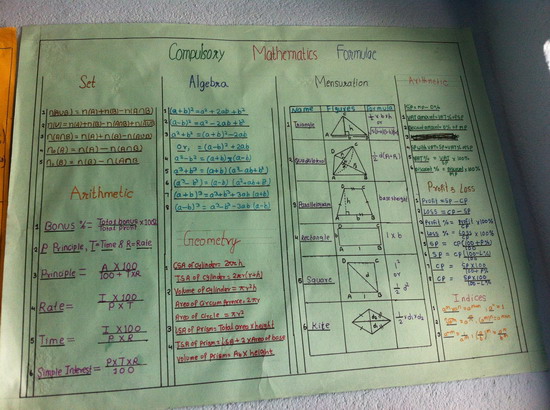 Compulsory Mathematics Formulae
Set
1 n(AUB) = n(A)+n(B)-n(A∩B)
2 n(U) = n(A)+n(B)-n(A∩B)
3 n(A∩B) = n(A)+n(B)-n(AUB)
4 n₀(A) = n(A) - n(A∩B)
5 n₀(B) = n(B) - n(A∩B
Arithmetic
1 Bonus % = Total bonus / Total Profit × 100%
2 P= Principle, T= Time & R= Rate
3 Principle = A × 100 / 100 + T×R
4 Rate = I × 100 / P × T
5 Time = I × 100 / P × R
6 Simple Interest = P×T×R / 100
Algebra
1 (a+b)² = a²+2ab+b²
2 (a-b)² = a²-2ab+b²
3 a²+b² = (a+b)²-2ab
or, = (a-b)²+2ab
4 a²-b² = (a+b)(a-b)
5 a³+b³ = (a+b)(a²-ab+b²)
6 (a³-b³) = (a-b)(a²+ab+b²)
(a+b)³ = a³+b³+3ab(a+b)
(a-b)³ = a³-b³-3ab(a-b)
Geometry
1 CSA of Cylinder = 2πrh
TSA of Cylinder = 2πr(r+h)
2 Volume of Cylinder = πr²h
Area of Circumference = 2πr
Area of Circle = πr²
3 LSA of Prism = Total area × height
4 TSA of Prism = LSA + 2 × Area of base
Volume of Prism = Ab × height
Mensuration
Name Figures Formula
1 Triangle ½ × b × h
or
2 Quadrilateral
3 Parallelogram base × height
4 Rectangle l × b
5 Square l²
or
½ d²
6 Kite ½ × d₁ × d₂
Arithmetic
Profit & Loss
1 Profit = SP - CP
2 Loss = CP - SP
3 Profit % = Profit / CP × 100%
4 Loss % = Loss / CP × 100%
5 SP = CP(100+P%) / 100
6 SP = CP(100-L%) / 100
7 CP = SP×100 / 100+P%
8 CP = SP×100 / 100-L%
Indices